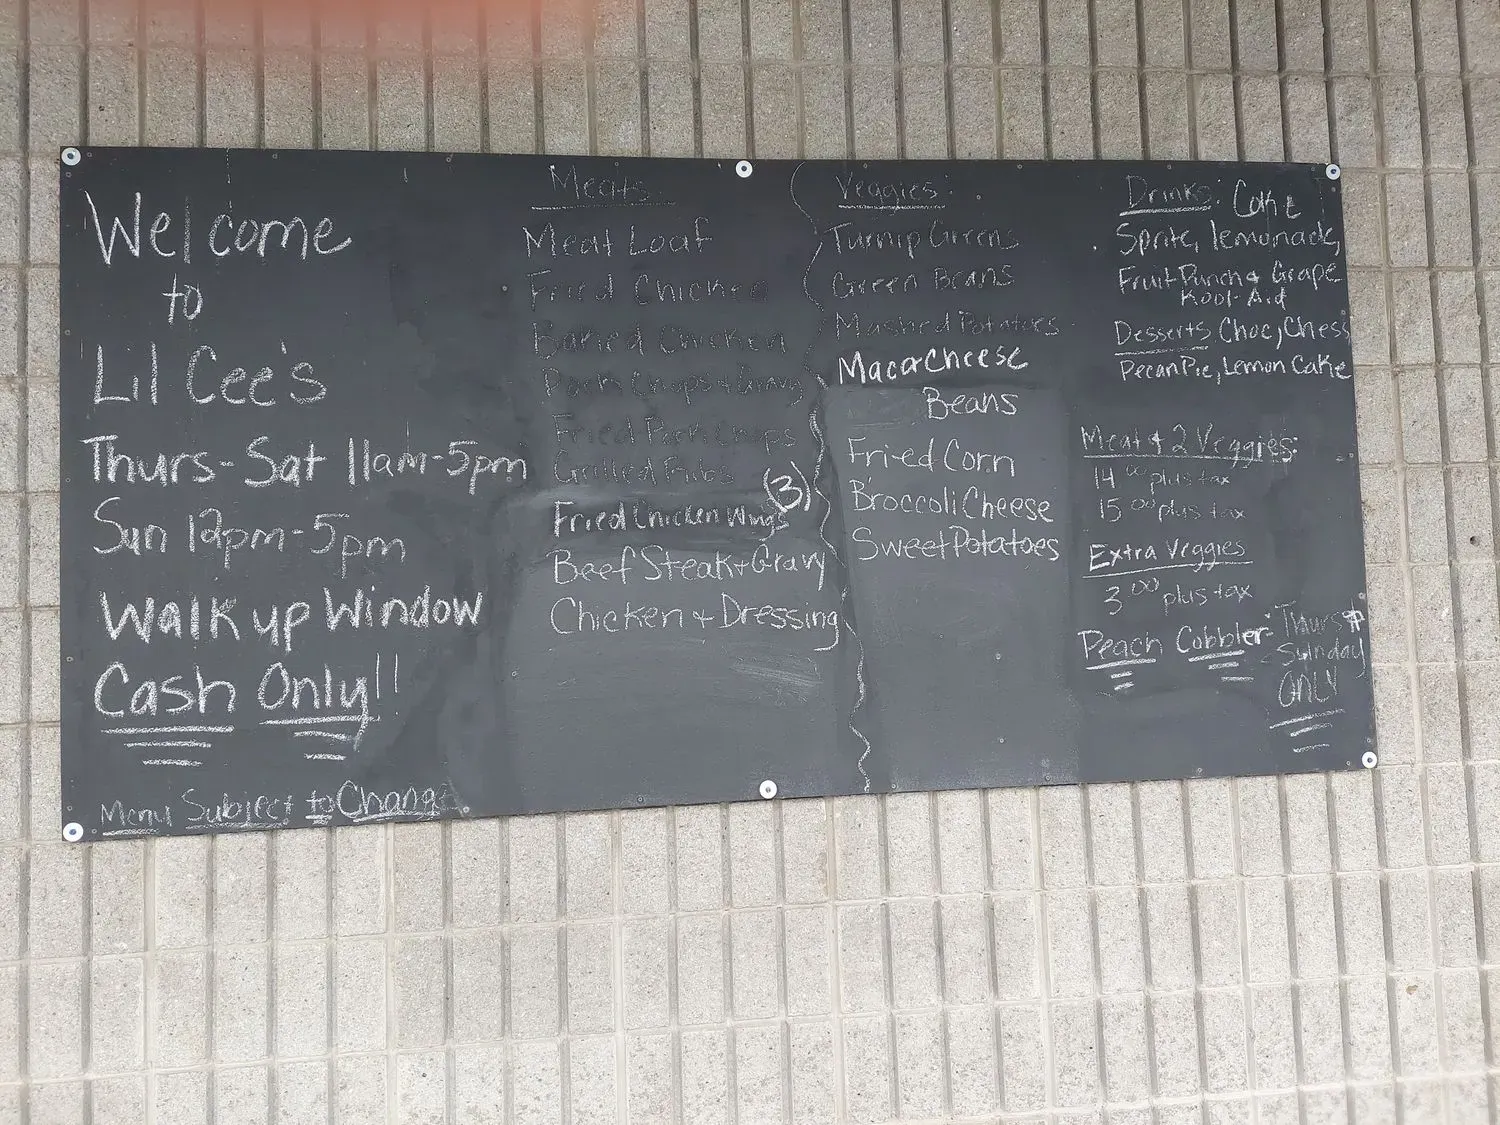 Welcome
to
Lil Cee's
Thurs-Sat 11am-5pm
Sun 12pm-5pm
Walk up Window
Cash Only!!
Menu Subject to Change
Meats
Meat Loaf
Fried Chicken
Baked Chicken
Pork Chops + Gravy
Fried Pork Chops
Grilled Ribs
Fried Chicken Wings (3)
Beef Steak + Gravy
Chicken + Dressing
Veggies:
Turnip Greens
Green Beans
Mashed Potatoes
Mac & Cheese
Beans
Fried Corn
Broccoli Cheese
Sweet Potatoes
Drinks: Coke
Sprite, lemonade,
Fruit Punch & Grape
Kool-Aid
Desserts Choc, Chess
Pecan Pie, Lemon Cake
Meat & 2 Veggies:
14 00 plus tax
15 00 plus tax
Extra Veggies
3 00 plus tax
Peach Cobbler- Thurs &
Sunday
ONLY